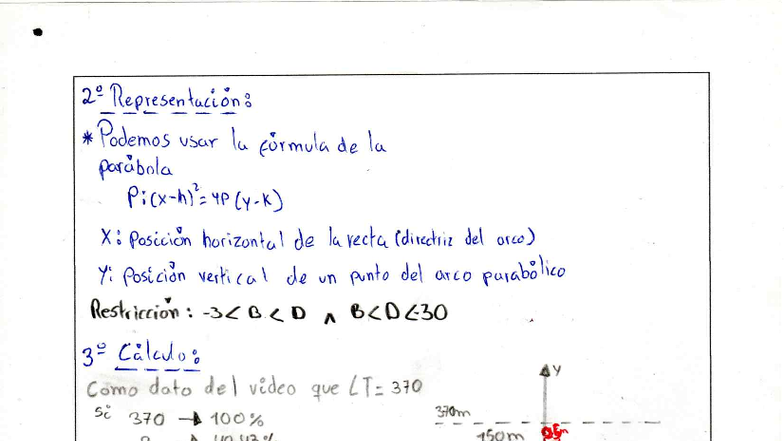 2º Representación:
* Podemos usar la fórmula de la
parábola
P: (x-h)²= 4P (y-K)
X: Posición horizontal de la recta (directriz del arco)
Y: Posición vertical de un punto del arco parabólico
Restricción: -3< B < D ∧ B<D<-30
3º Cálculo:
Como dato del video que LT= 370
Si 370 → 100%
y
370m
150m